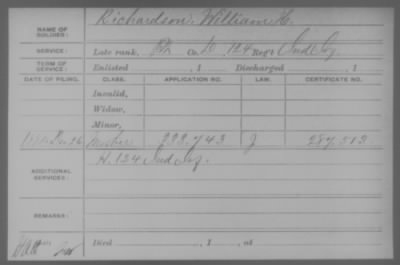 NAME OF SOLDIER: Richardson, William H.
SERVICE: Late rank, Co. 124 Reg't Ind. Inf.
TERM OF SERVICE: Enlisted , 1 Discharged , 1
DATE OF FILING. CLASS. APPLICATION NO. LAW. CERTIFICATE NO.
Invalid,
Widow,
Minor,
26 Mother 293.743 287.513
ADDITIONAL SERVICES: H. 124 Ind. Inf.
REMARKS:
Died , 1 , at